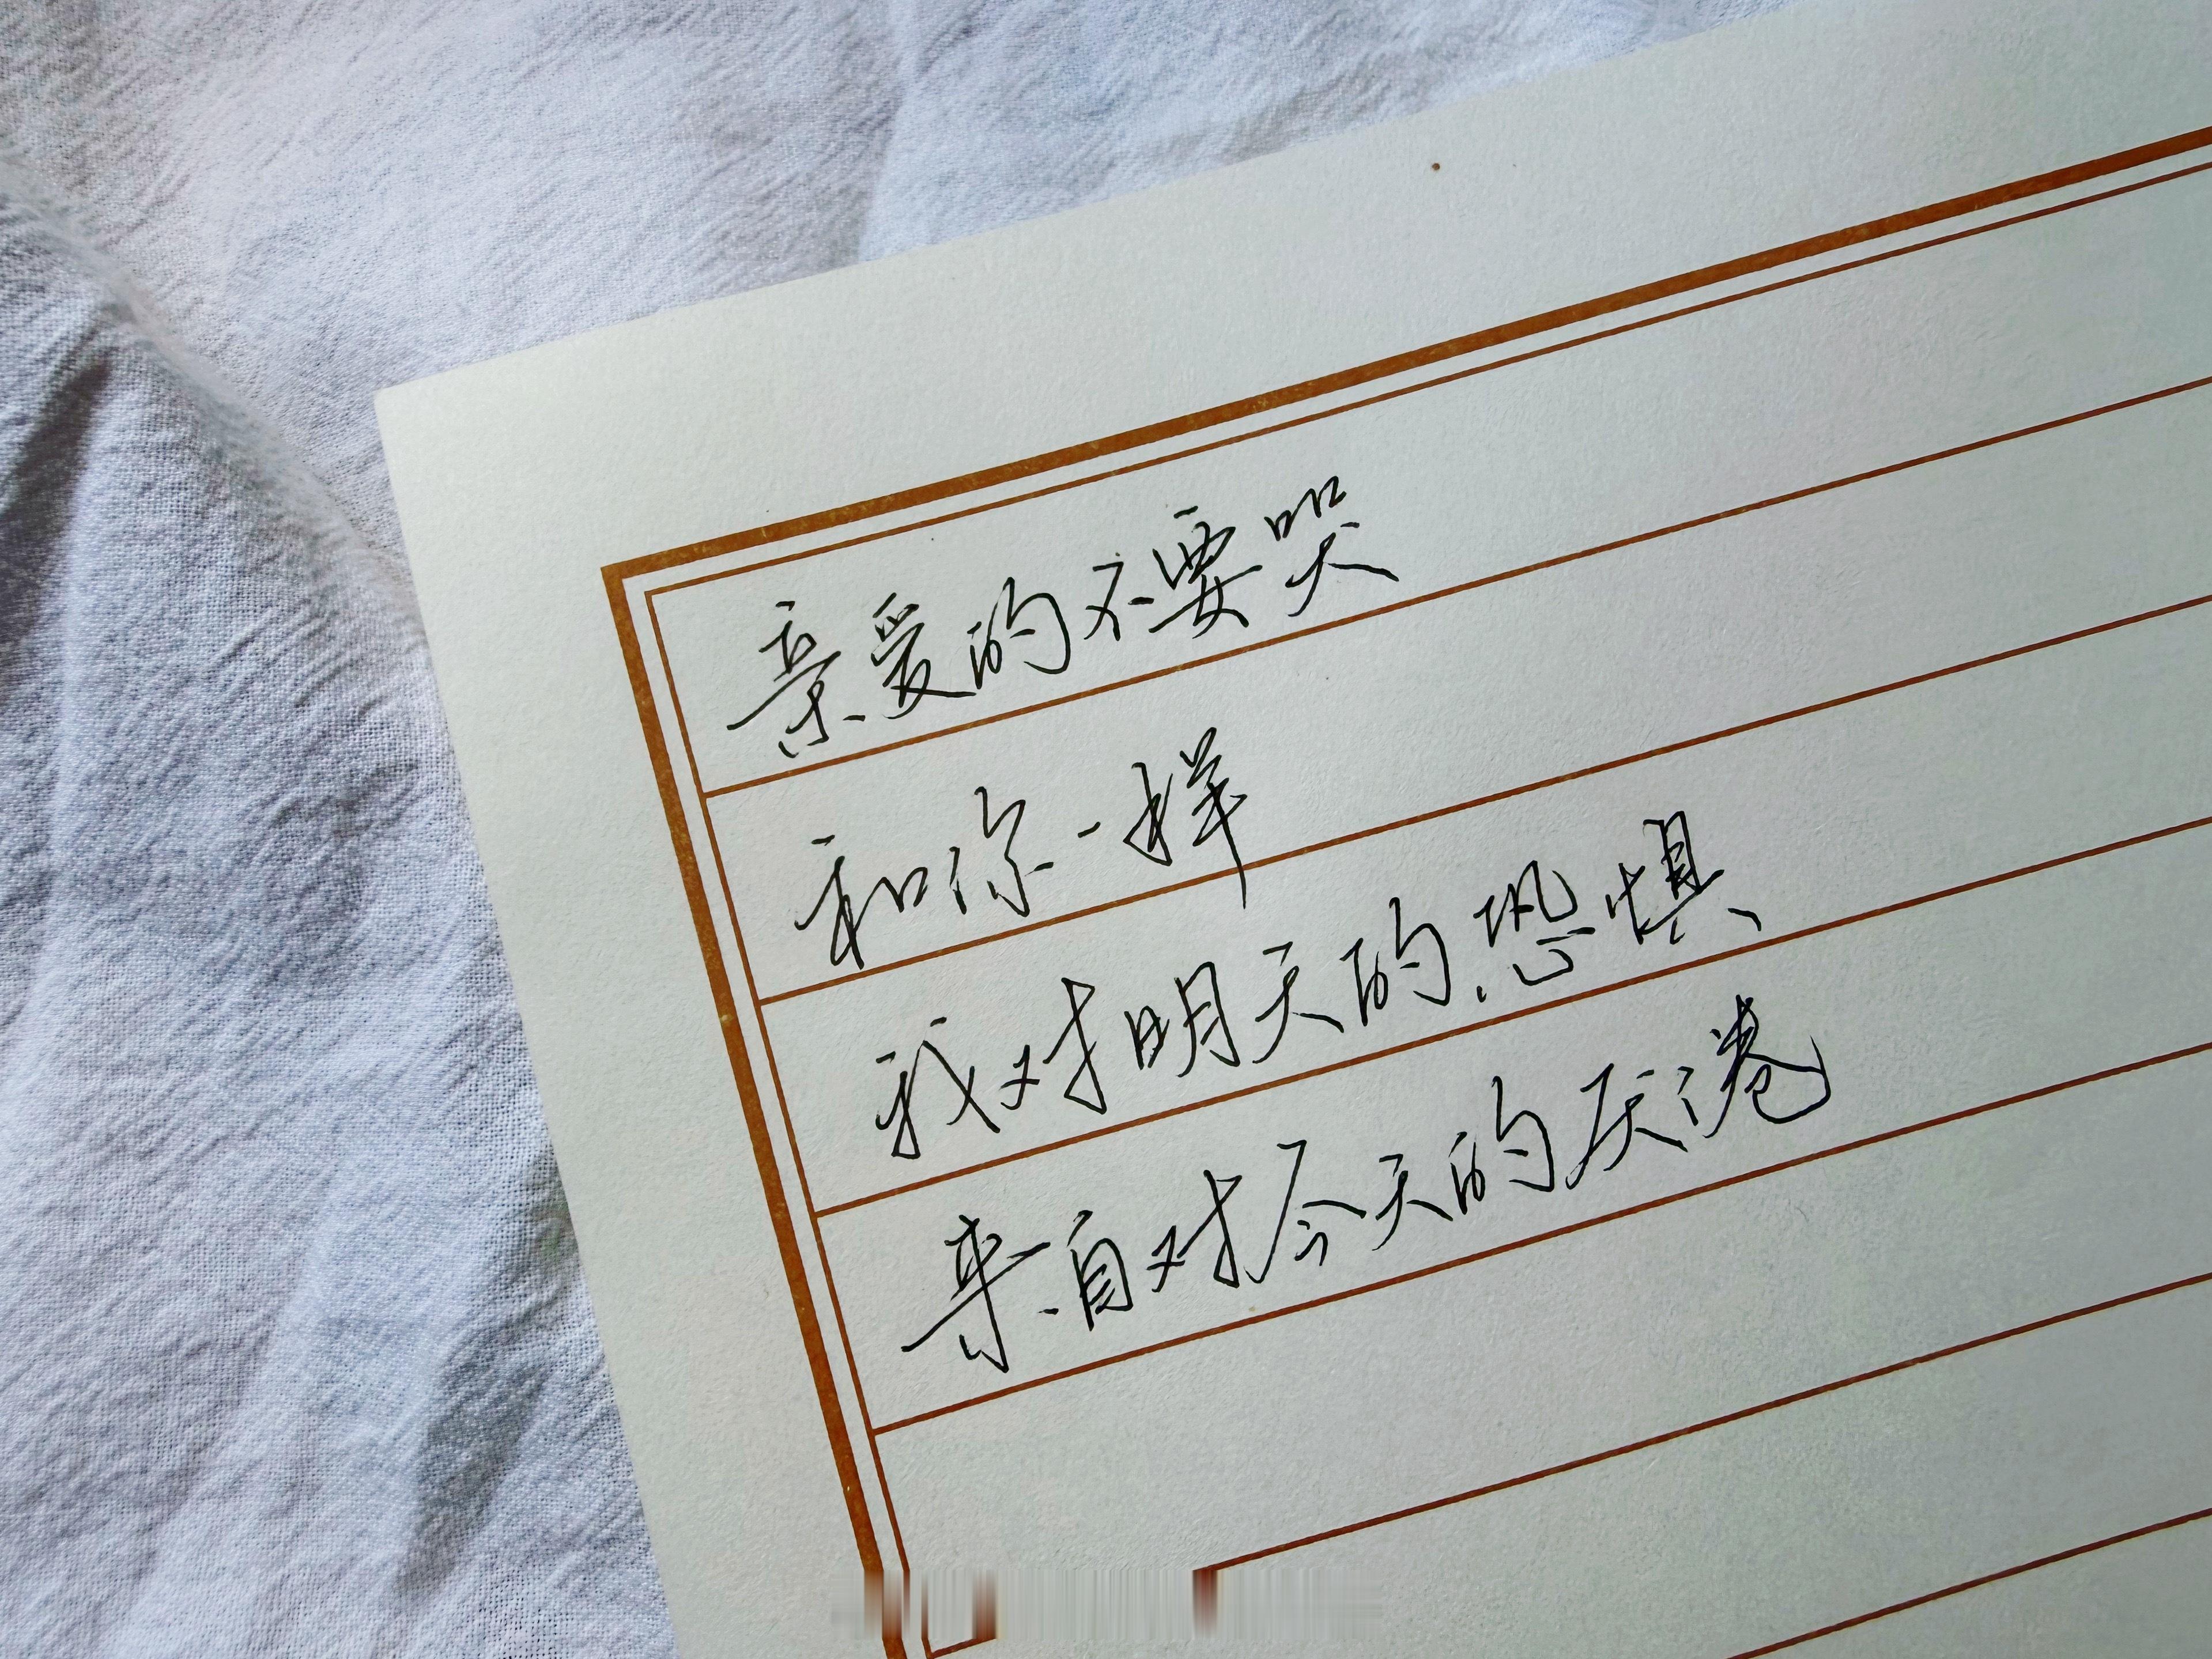 亲爱的不要哭
和你一样
我对明天的恐惧
来自对今天的厌倦